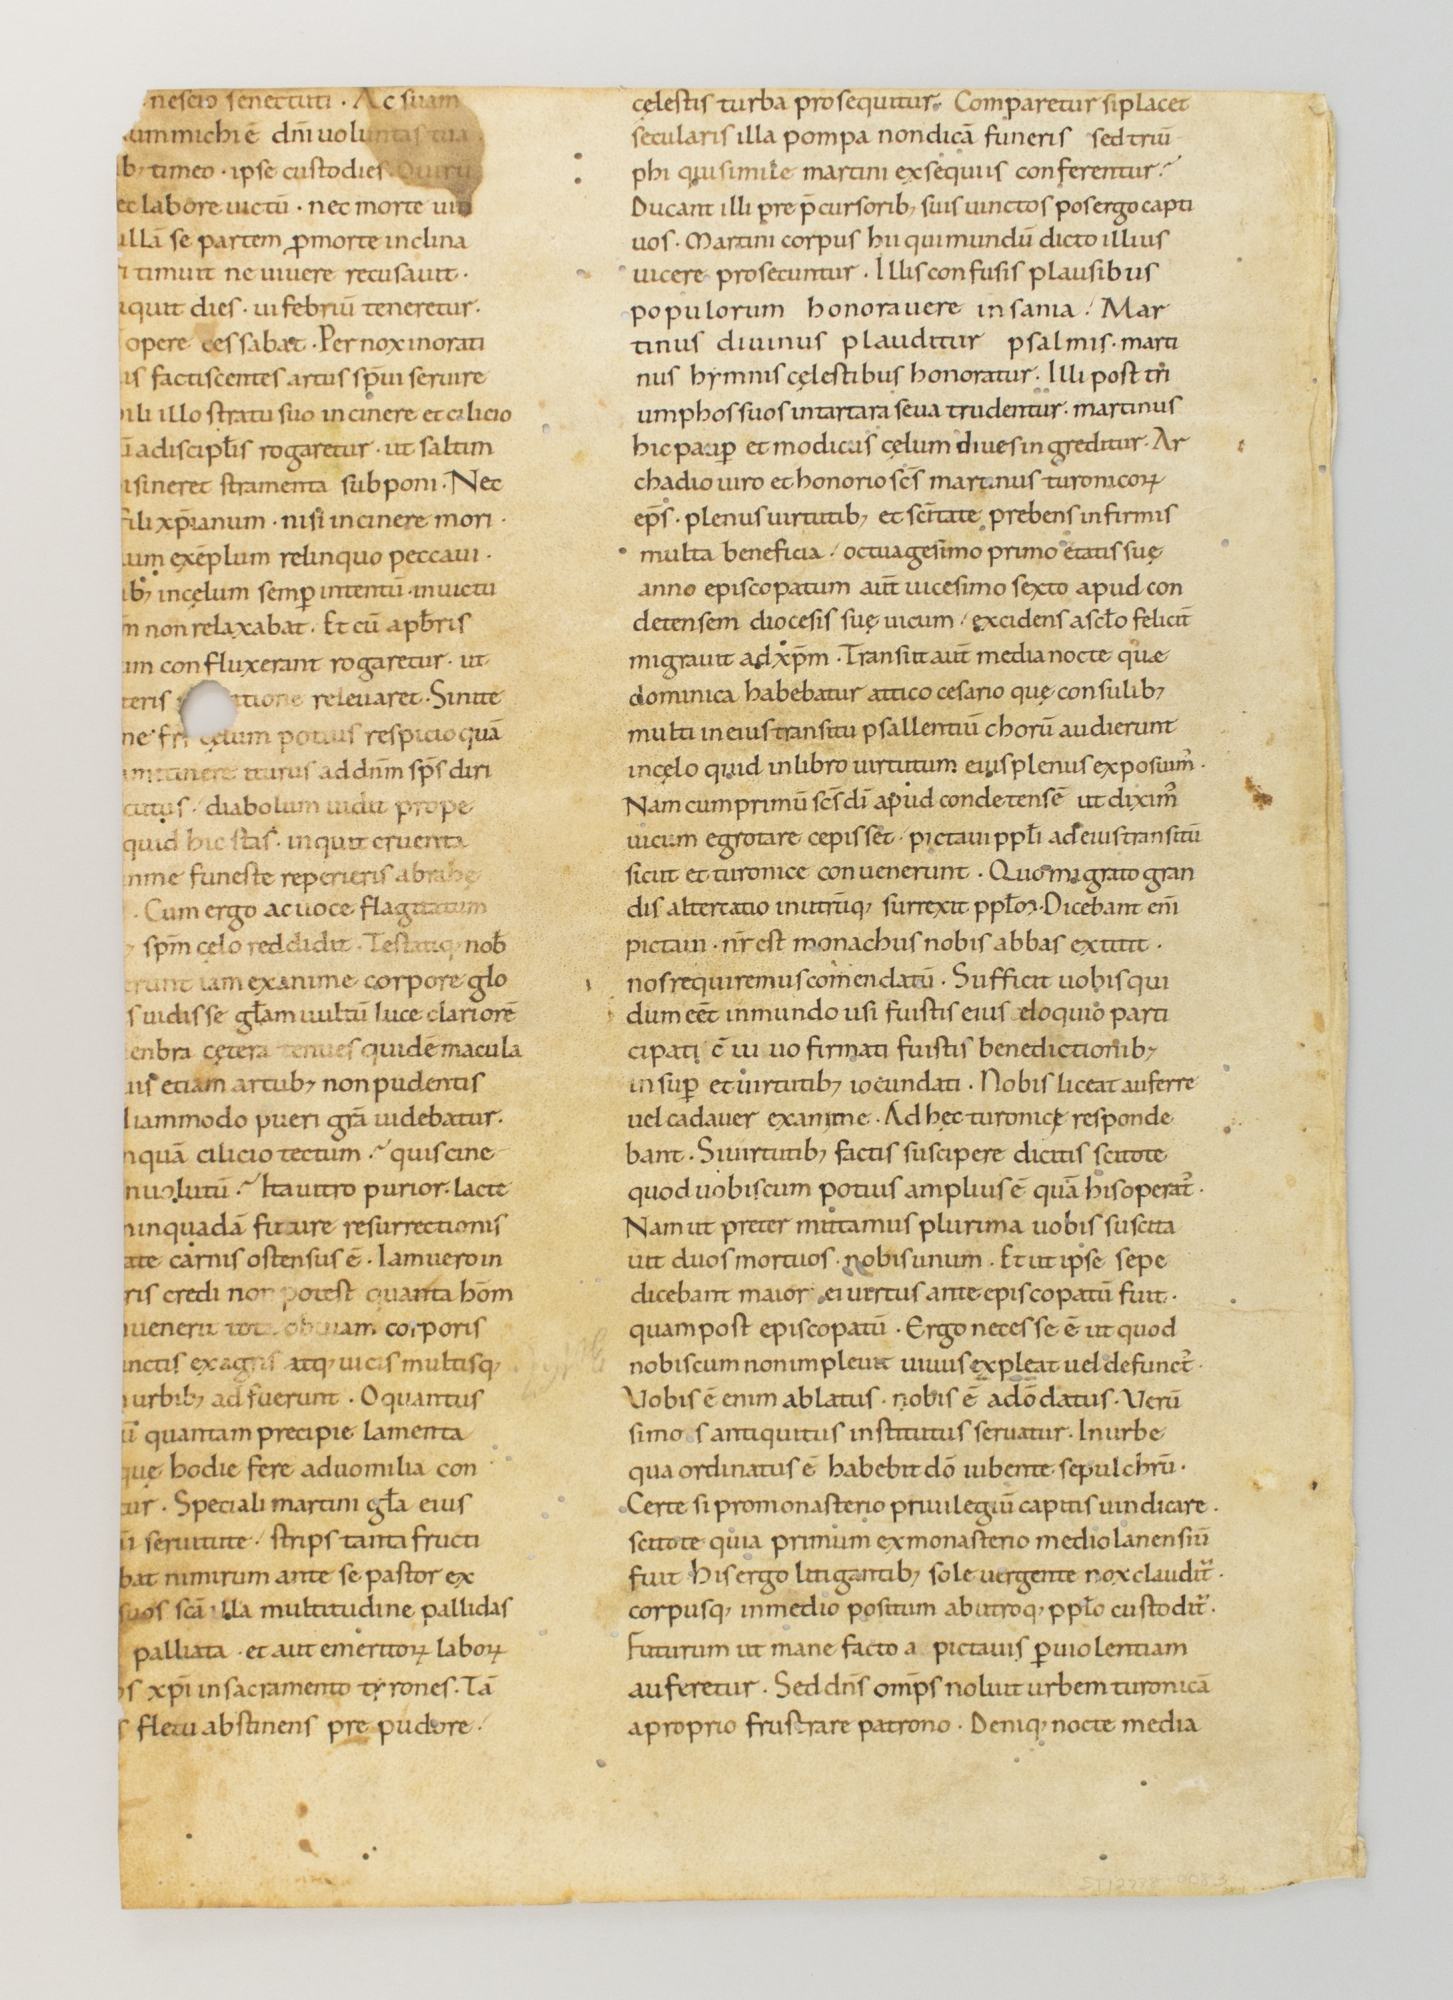 nescio senectuti · Ac suam
michi ē dn̄i uoluntas tua ·
timeo · ipse custodies ·
labore uictū · nec morte
illā se partem ꝓmorte inclina
timuit ne uiuere recusauit ·
dies · ui febriū teneretur ·
opere cessabat · Pernox inorati
factiscentes artus sp̄ui seruire
illo stratu suo in cinere et cilicio
adiscipłis rogaretur · ut saltim
sineret stramenta subponi · Nec
fili xp̄ianum · nisi in cinere mori ·
exēplum relinquo peccaui ·
incęlum semꝑ intentū · inuictū
non relaxabat · Et cū apb̄ris
confluxerant rogaretur · ut
releuaret · Sinite
cęlum potius respicio quā
iturus addn̄m sp̄s diri
diabolum uidit prope
quid hic stas · inquit cruenta
funeste reperieris abrahę
· Cum ergo ac uoce flagitatum
sp̄m cęlo reddidit · Testatiq; nob̄
iam exanime corpore glo
uidisse gła̅m uultū luce clariorē
cętera tenues quidē macula
etiam artub; non pudentis
modo pueri gr̄a uidebatur ·
quā cilicio tectum · quis cine
· Ita uitro purior · lacte
quadā future resurrectionis
carnis ostensus ē · Iam uero in
credi non potest quanta hōm
obuiam corporis
ex agris atq; uicis multisq;
urbib; adfuerunt · O quantus
quantam precipie lamenta
hodie fere aduomilia con
· Speciali martini gła eius
seruitute · strips tanta fructi
nimirum ante se pastor ex
suos scā illa multitudine pallidas
palliata · et aut emeritoꝝ laboꝝ
xp̄i in sacramento tyrones · Tā
fletu abstinens pre pudore ·
cęlestis turba prosequitur · Comparetur si placet
secularis illa pompa non dicā funeris sed triū
phi qui simile martini exsequiis conferentur ·
Ducant illi pre p̄cursorib; suis uinctos pos ergo capti
uos · Martini corpus hii qui mundū dicto illius
uicere prosecuntur · Illis confusis plausibus
populorum honorauere insania · Mar
tinus diuinus plauditur psalmis · marti
nus hymnis cęlestibus honoratur · Illi post tri
umphos suos in tartara seua trudentur · martinus
hic pauꝑ et modicus cęlum diues ingreditur · Ar
chadio uiro et honorio scs̄ martinus turonicoꝝ
ep̄s · plenus uirtutib; et scītate prebens infirmis
multa beneficia · octuagesimo primo ętatis suę
anno episcopatum aūt uicesimo sexto apud con
detensem diocesis suę uicum · excidens ascło felicit̄
migrauit ad xp̄m · Transiit aūt media nocte que
dominica habebatur attico cesario quę consulib;
multi in eius transitu psallentiū chorū audierunt
incęlo quid in libro uirtutum eius plenus exposuim᷒ ·
Nam cum primū scs̄ dī apud condetensē ut dixim᷒
uicum egrotare cepisset · pictaui ppłi ad eius transitū
sicut et turonice conuenerunt · Quo migrato gran
dis altercatio in utrūq; surrexit ppłoꝝ · Dicebant enī
pictaui · nr̄ est monachus nobis abbas extitit ·
nos requiremus comendatū · Sufficit uobis qui
dum eēt in mundo usi fuistis eius eloquio parti
cipati c̄ui uo firmati fuistis benedictionib;
insuꝑ et uirtutib; iocundati · Nobis liceat auferre
uel cadauer exanime · Ad hęc turonicę responde
bant · Si uirtutib; factis suscipere dicitis scitote
quod uobiscum potius amplius ē quā his operat᷒ ·
Nam ut preter mittamus plurima uobis suscita
uit duos mortuos · nobis unum · Et ut ipse sepe
dicebant maior ei uirtus ante episcopatū fuit ·
quam post episcopatū · Ergo necesse ē ut quod
nobiscum non impleuit uiuus expleat uel defunct᷒ ·
Vobis ē enim ablatus · nobis ē adō datus · Verū
si mos antiquitus institutus seruatur · In urbe
qua ordinatus ē habebit dō iubente sepulchrū ·
Certe si pro monasterio priuilegiū capitis uindicare ·
scitote quia primum ex monasterio mediolanensiū
fuit · His ergo litigantib; sole uergente nox claudit᷒ ·
corpusq; in medio positum ab utroq; ppło custodit᷒ ·
Futurum ut mane facto a pictauis ꝑuiolentiam
auferetur · Sed dn̄s omp̄s noluit urbem turonicā
a proprio frustrare patrono · Deniq; nocte media